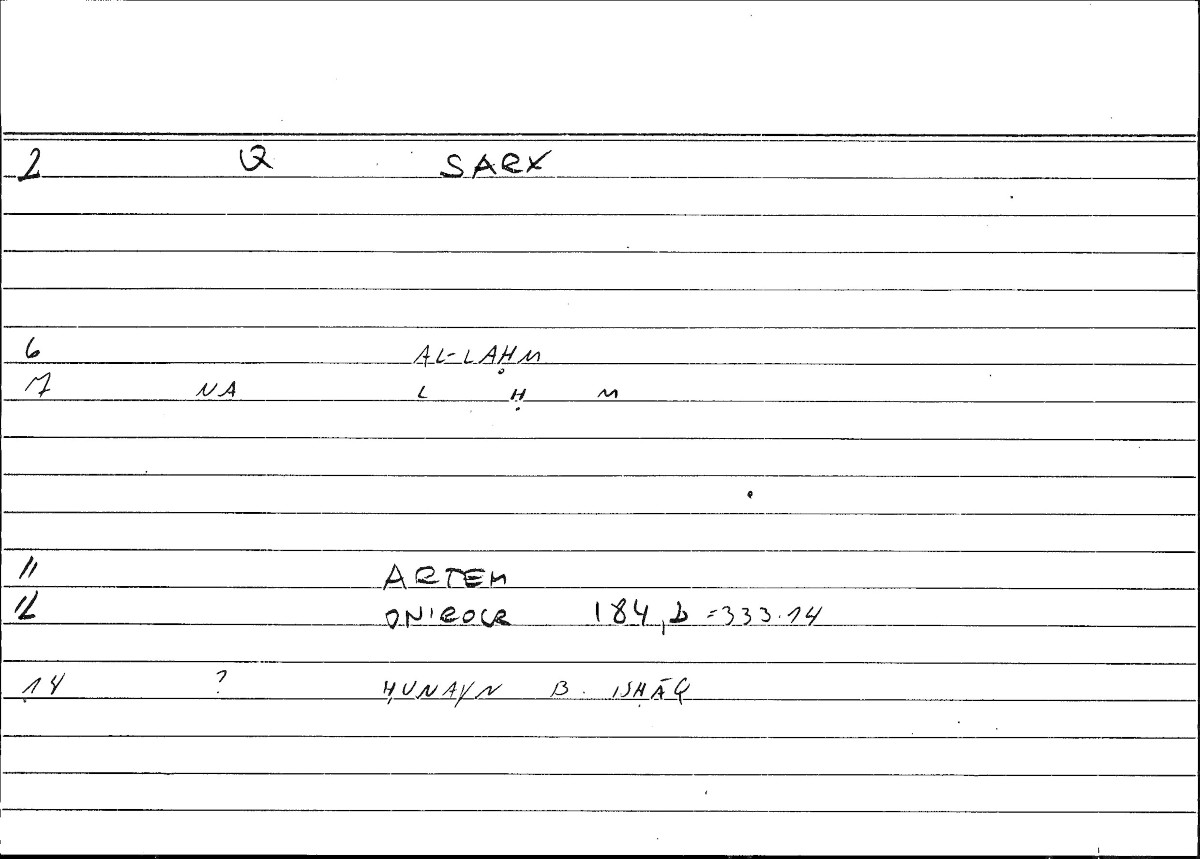 2 Q SARX
6 AL-LAḤM
7 NA L Ḥ M
11 ARTEM
12 ONIROCR 184,b =333.14
14 ? ḤUNAYN B. ISḤĀQ